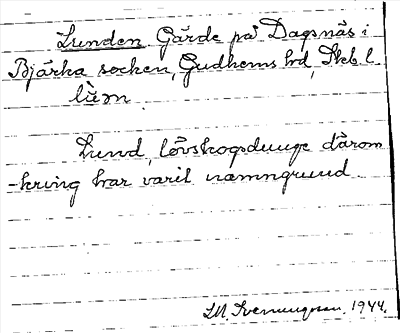 Lunden Gärde på Dagsnäs i
Bjärka socken, Gudhems hd, Skb. l.
lùm.
Lund, lövskogsdunge därom-
kring har varit namngrund.
1944.